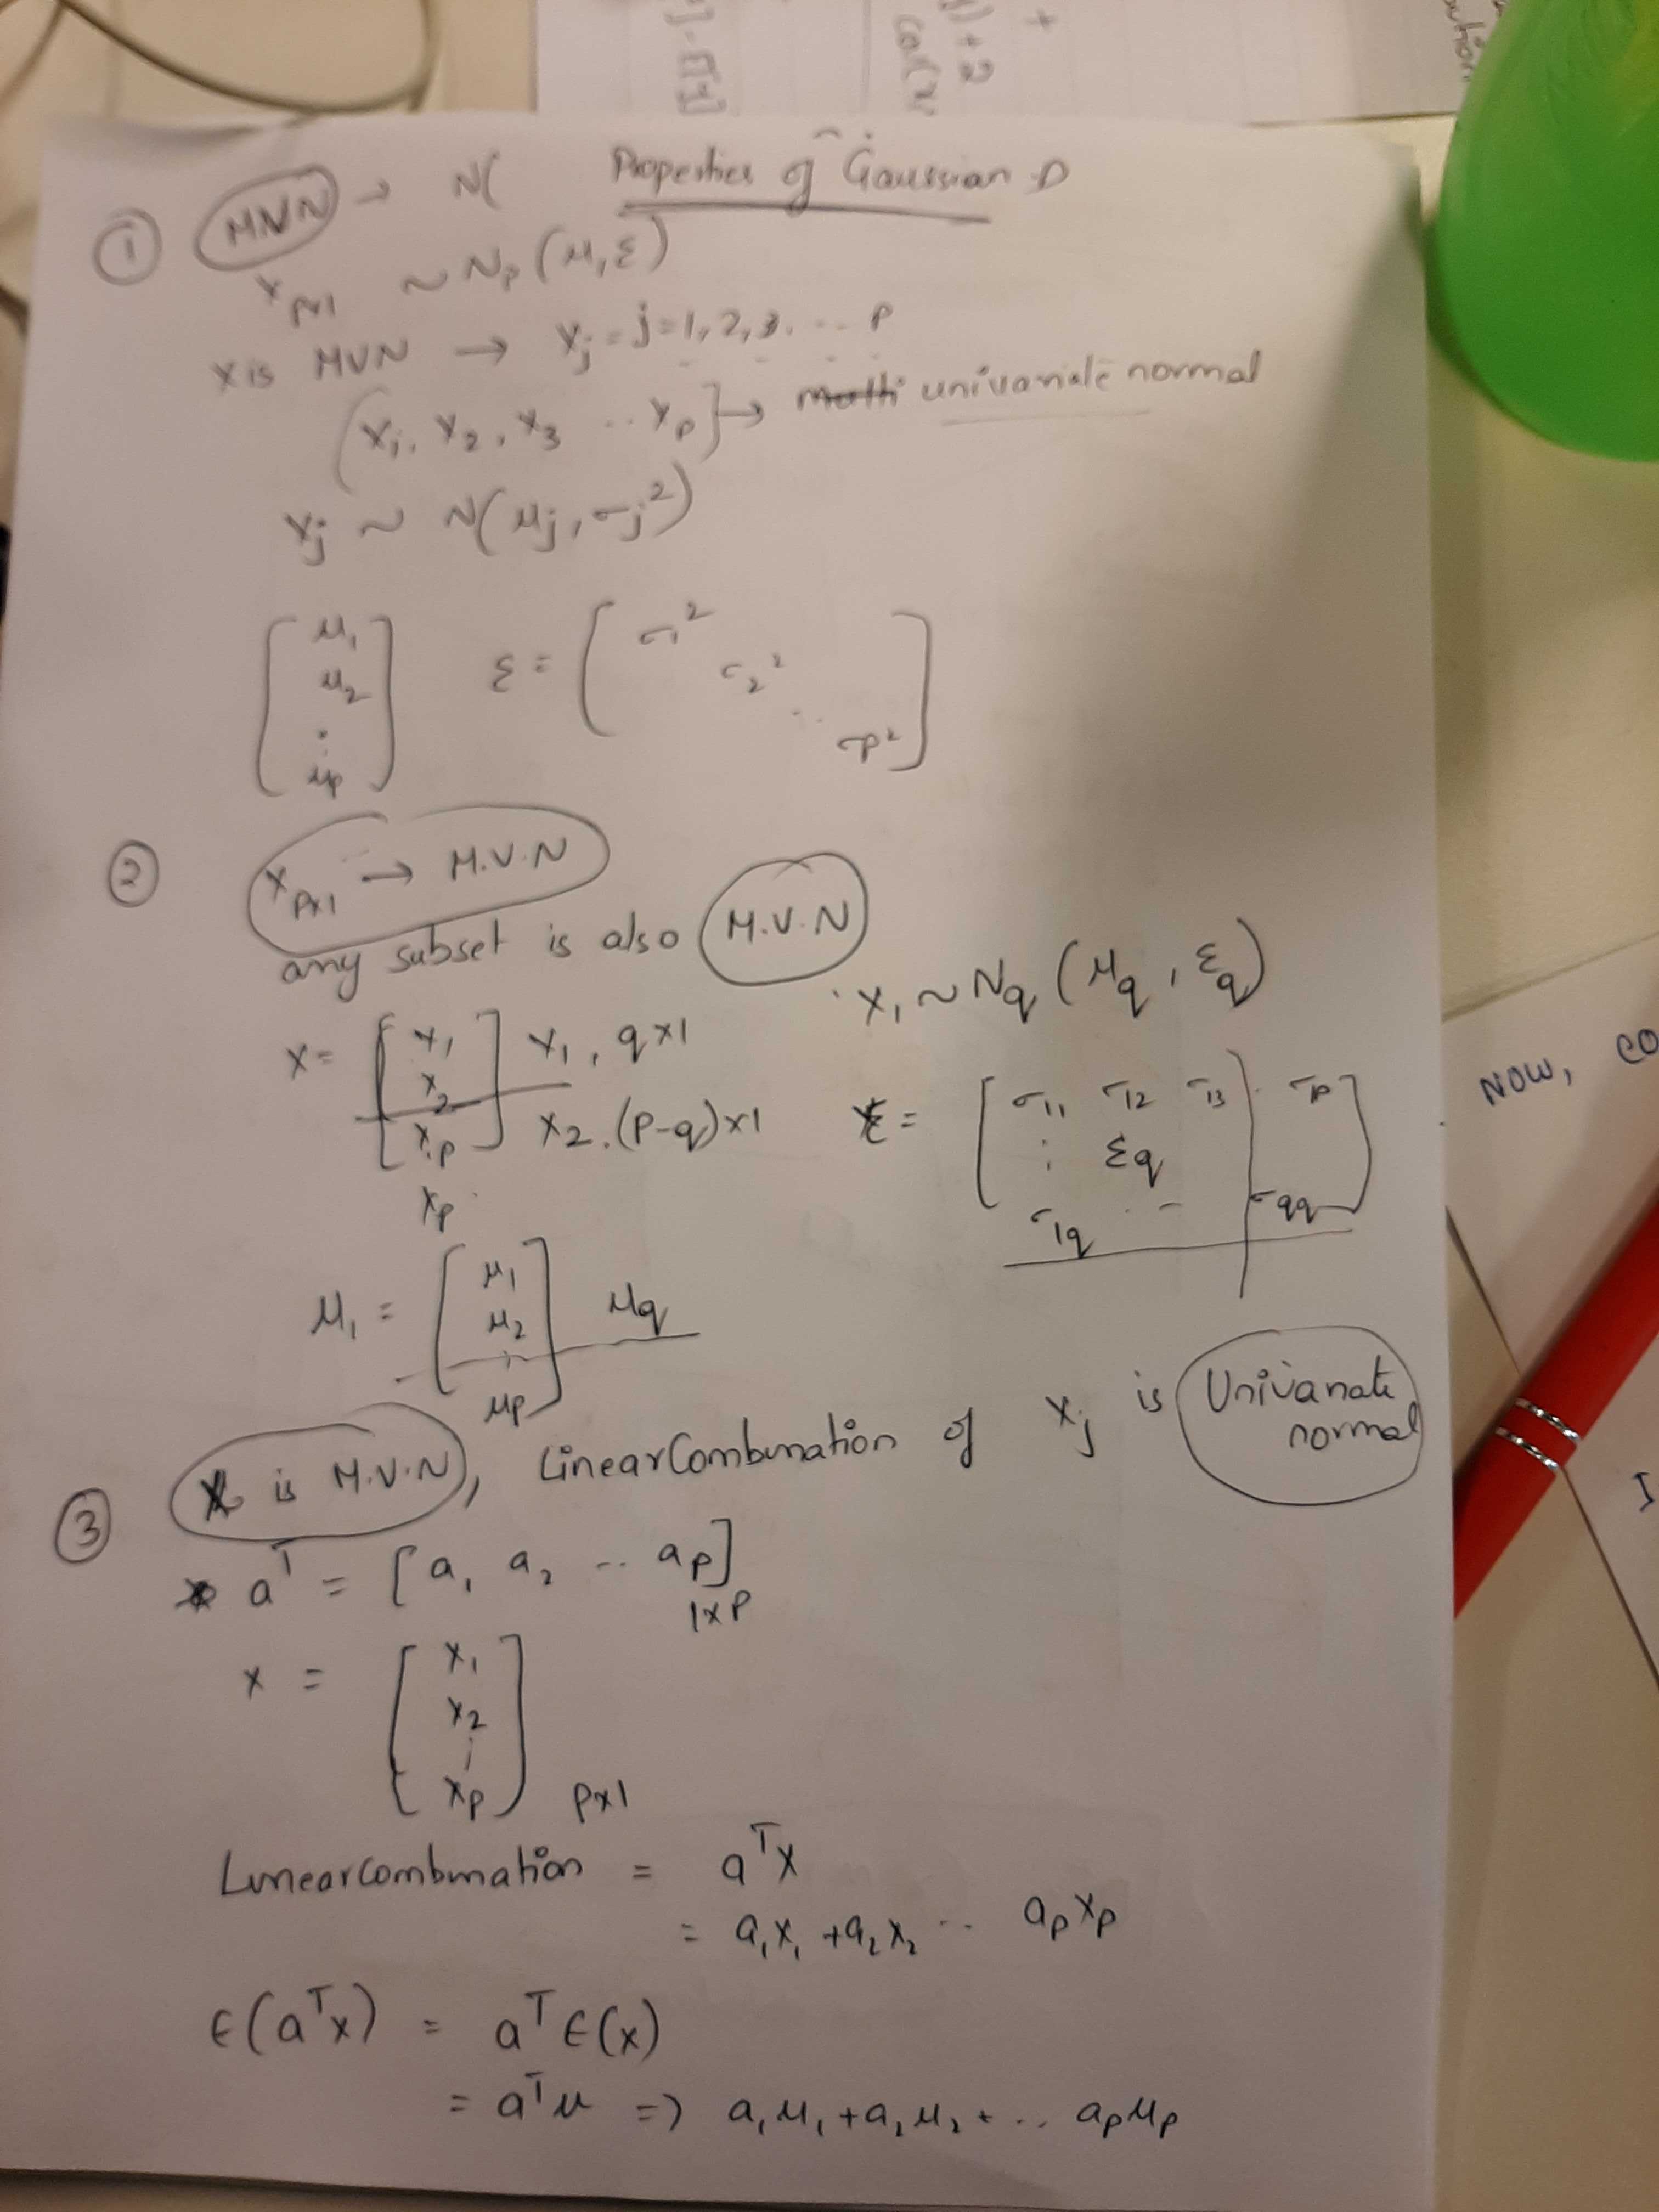 ] - [Ty]
y) + 2
cov(x
+
ution
Properties of Gaussian D
① MNN → N(
X p×1 ~ Np (μ, Σ)
X is MVN → Xj = j=1, 2, 3, ... P
(X1, X2, X3 .. Xp] → univariate normal
Xj ~ N(μj, σj²)
[μ1 μ2 : μp] Σ = [σ1² σ2² .. σp²]
② X p×1 → M.V.N
any subset is also M.V.N
X1 ~ Nq (μq, Σq)
X = [X1 X2 Xp] X1, q×1
X2. (p-q)×1
Xp
Σ = [σ11 σ12 σ13 . σp : Σq σ1q .. σqq]
μ1 = [μ1 μ2 : μp] μq
③ X is M.V.N, Linear Combination of Xj is Univariate normal
a^T = [a1 a2 .. ap] 1×P
X = [X1 X2 ; Xp] P×1
Linear combination = a^T X
= a1X1 + a2X2 .. apXp
E(a^T X) = a^T E(x)
= a^T μ => a1μ1 + a2μ2 + .. apμp
NOW, CO
I